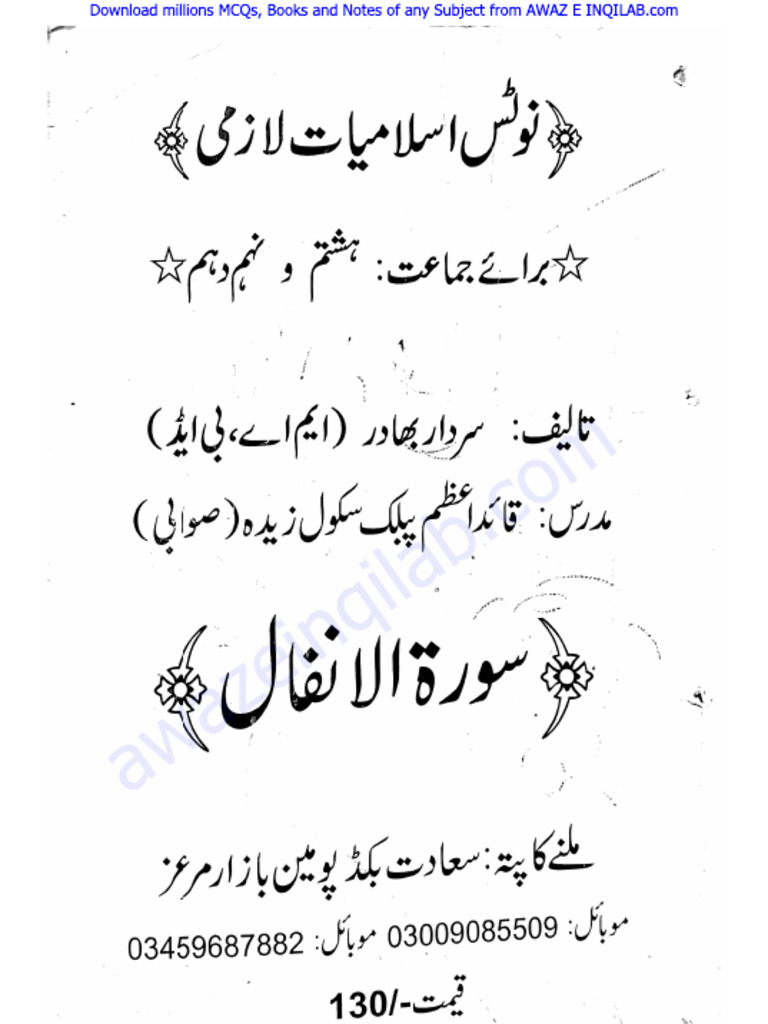 Download millions MCQs, Books and Notes of any Subject from AWAZ E INQILAB.com
نوٹس اسلامیات لازمی
☆برائے جماعت: ہشتم و نہم دہم☆
تالیف: سردار بھادر (ایم اے، بی ایڈ)
مدرس: قائداعظم پبلک سکول زیدہ (صوابی)
سورة الانفال
ملنے کا پتہ: سعادت بکڈپو مین بازار مرغز
موبائل: 03009085509 موبائل: 03459687882
قیمت-/130
awazeinqilab.com